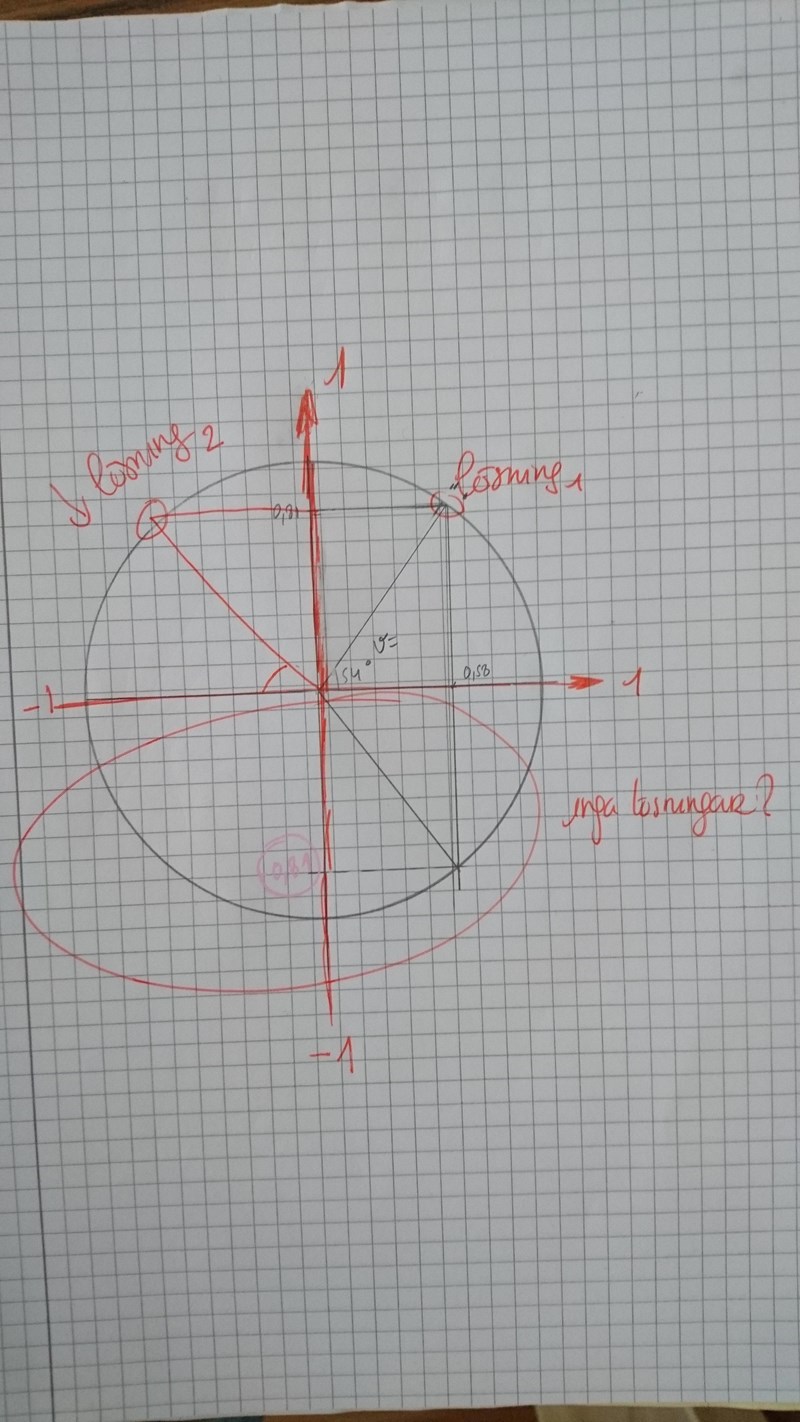 1
lösning 2
lösning 1
0,81
v=
54°
0,58
1
-1
inga lösningar?
-1